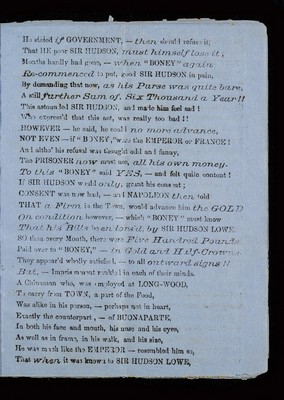 He stated if GOVERNMENT, — then should refuse it;
That HE poor SIR HUDSON, must himself lose it,
Months hardly had gone, — when "BONEY" again
Re-commenced to put, good SIR HUDSON in pain,
By demanding that now, as his Purse was quite bare,
A still further Sum of, Six Thousand a Year!!
This astounded SIR HUDSON, and made him feel sad!
Who express'd that this act, was really too bad!!
HOWEVER — he said, he could no more advance,
NOT EVEN — if "BONEY," was the EMPEROR of FRANCE!
And altho' his refusal was thought odd and funny,
The PRISONER now must use, all his own money.
To this "BONEY" said YES, — and felt quite content!
If SIR HUDSON would only, grant his consent;
CONSENT was now had, — and NAPOLEON then told
THAT a Firm in the Town, would advance him the GOLD
On condition however, — which "BONEY" must know
That his Bills be endors'd, by SIR HUDSON LOWE.
SO then every Month, there was Five Hundred Pounds
Paid over to "BONEY," — in Gold and Half-Crowns
They appear'd wholly satisfied, — to all outward signs!!
But, — Imprisonment rankled in each of their minds.
A Chinaman who, was employed at LONG-WOOD,
To carry from TOWN, a part of the Food,
Was alike in his person, — perhaps not in heart,
Exactly the counterpart, — of BUONAPARTE,
In both his face and mouth, his nose and his eyes,
As well as in frame, in his walk, and his size,
He was much like the EMPEROR — resembled him so,
That when it was known to SIR HUDSON LOWE,